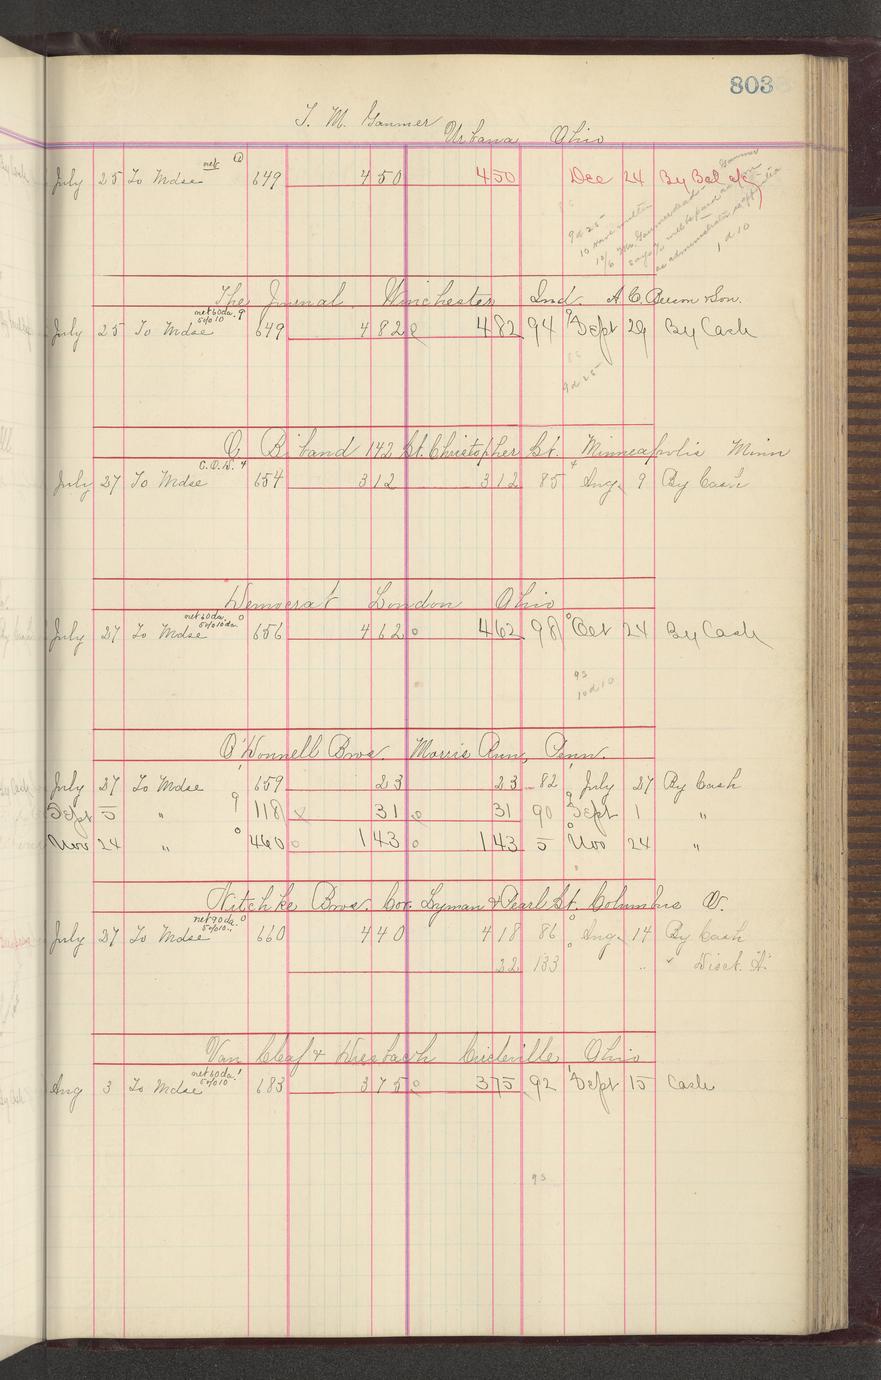 803
T. M. Gaumer Urbana Ohio
July 25 To Mdse net 649 4 50 4 50 Dec 24 By Bal
9d 25
1 d 10
The Journal Winchester Ind. A. C. Beeson & Son.
July 25 To Mdse net 60 da. 5% 10 9 649 4 82 4 82 94 9 Sept 29 By Cash
9d 25
142 St. Christopher St. Minneapolis Minn
July 27 To Mdse C.O.D. 4 654 3 12 3 12 85 4 Aug. 9 By Cash
Democrat London Ohio
July 27 To Mdse net 60 da. 5% 10 da. 0 656 4 62 0 4 62 98 0 Oct 24 By Cash
93
10 d 10
O'Donnell Bros. Morris Run, Penn.
July 27 To Mdse 1 659 23 23 82 1 July 27 By Cash
Sept 5 " 9 118 x 31 31 90 9 Sept 1 "
Nov 24 " 0 460 0 1 43 0 1 43 5 0 Nov 24 "
Nitchke Bros. Cor. Lyman & Pearl St. Columbus O.
July 27 To Mdse net 90 da. 5% 10 0 660 4 40 4 18 86 0 Aug. 14 By Cash
22 133 0 " " Disct. "A"
Van Cleaf & Wiesbach Circleville Ohio
Aug 3 To Mdse net 60 da. 5% 10 1 683 3 75 3 75 92 1 Sept 15 Cash
93